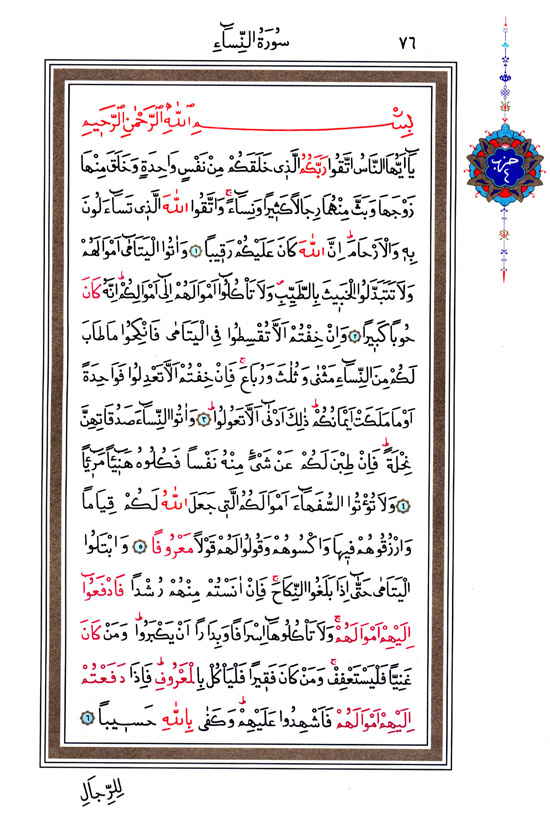 سُورَةُ النِّسَاءِ ٧٦
بِسْمِ اللّٰهِ الرَّحْمٰنِ الرَّحِيمِ
يَٓا اَيُّهَا النَّاسُ اتَّقُوا رَبَّكُمُ الَّذ۪ي خَلَقَكُمْ مِنْ نَفْسٍ وَاحِدَةٍ وَخَلَقَ مِنْهَا
زَوْجَهَا وَبَثَّ مِنْهُمَا رِجَالًا كَث۪يرًا وَنِسَٓاءًۚ وَاتَّقُوا اللّٰهَ الَّذ۪ي تَسَٓاءَلُونَ
بِه۪ وَالْاَرْحَامَۜ اِنَّ اللّٰهَ كَانَ عَلَيْكُمْ رَق۪يبًا ﴿١﴾ وَاٰتُوا الْيَتَامٰٓى اَمْوَالَهُمْ
وَلَا تَتَبَدَّلُوا الْخَب۪يثَ بِالطَّيِّبِۖ وَلَا تَأْكُلُٓوا اَمْوَالَهُمْ اِلٰٓى اَمْوَالِكُمْۜ اِنَّهُ كَانَ
حُوبًا كَب۪يرًا ﴿٢﴾ وَاِنْ خِفْتُمْ اَلَّا تُقْسِطُوا فِي الْيَتَامٰى فَانْكِحُوا مَا طَابَ
لَكُمْ مِنَ النِّسَٓاءِ مَثْنٰى وَثُلٰثَ وَرُبَاعَۚ فَاِنْ خِفْتُمْ اَلَّا تَعْدِلُوا فَوَاحِدَةً
اَوْ مَا مَلَكَتْ اَيْمَانُكُمْۜ ذٰلِكَ اَدْنٰٓى اَلَّا تَعُولُواۜ ﴿٣﴾ وَاٰتُوا النِّسَٓاءَ صَدُقَاتِهِنَّ
نِحْلَةًۜ فَاِنْ طِبْنَ لَكُمْ عَنْ شَيْءٍ مِنْهُ نَفْسًا فَكُلُوهُ هَن۪ٓيـًٔا مَر۪ٓيـًٔا
﴿٤﴾ وَلَا تُؤْتُوا السُّفَهَٓاءَ اَمْوَالَكُمُ الَّت۪ي جَعَلَ اللّٰهُ لَكُمْ قِيَامًا
وَارْزُقُوهُمْ ف۪يهَا وَاكْسُوهُمْ وَقُولُوا لَهُمْ قَوْلًا مَعْرُوفًا ﴿٥﴾ وَابْتَلُوا
الْيَتَامٰى حَتّٰٓى اِذَا بَلَغُوا النِّكَاحَۚ فَاِنْ اٰنَسْتُمْ مِنْهُمْ رُشْدًا فَادْفَعُٓوا
اِلَيْهِمْ اَمْوَالَهُمْۚ وَلَا تَأْكُلُوهَٓا اِسْرَافًا وَبِدَارًا اَنْ يَكْبَرُواۜ وَمَنْ كَانَ
غَنِيًّا فَلْيَسْتَعْفِفْۚ وَمَنْ كَانَ فَق۪يرًا فَلْيَأْكُلْ بِالْمَعْرُوفِۜ فَاِذَا دَفَعْتُمْ
اِلَيْهِمْ اَمْوَالَهُمْ فَاَشْهِدُوا عَلَيْهِمْۜ وَكَفٰى بِاللّٰهِ حَس۪يبًا ﴿٦﴾
لِلرِّجَالِ
حزب
٤